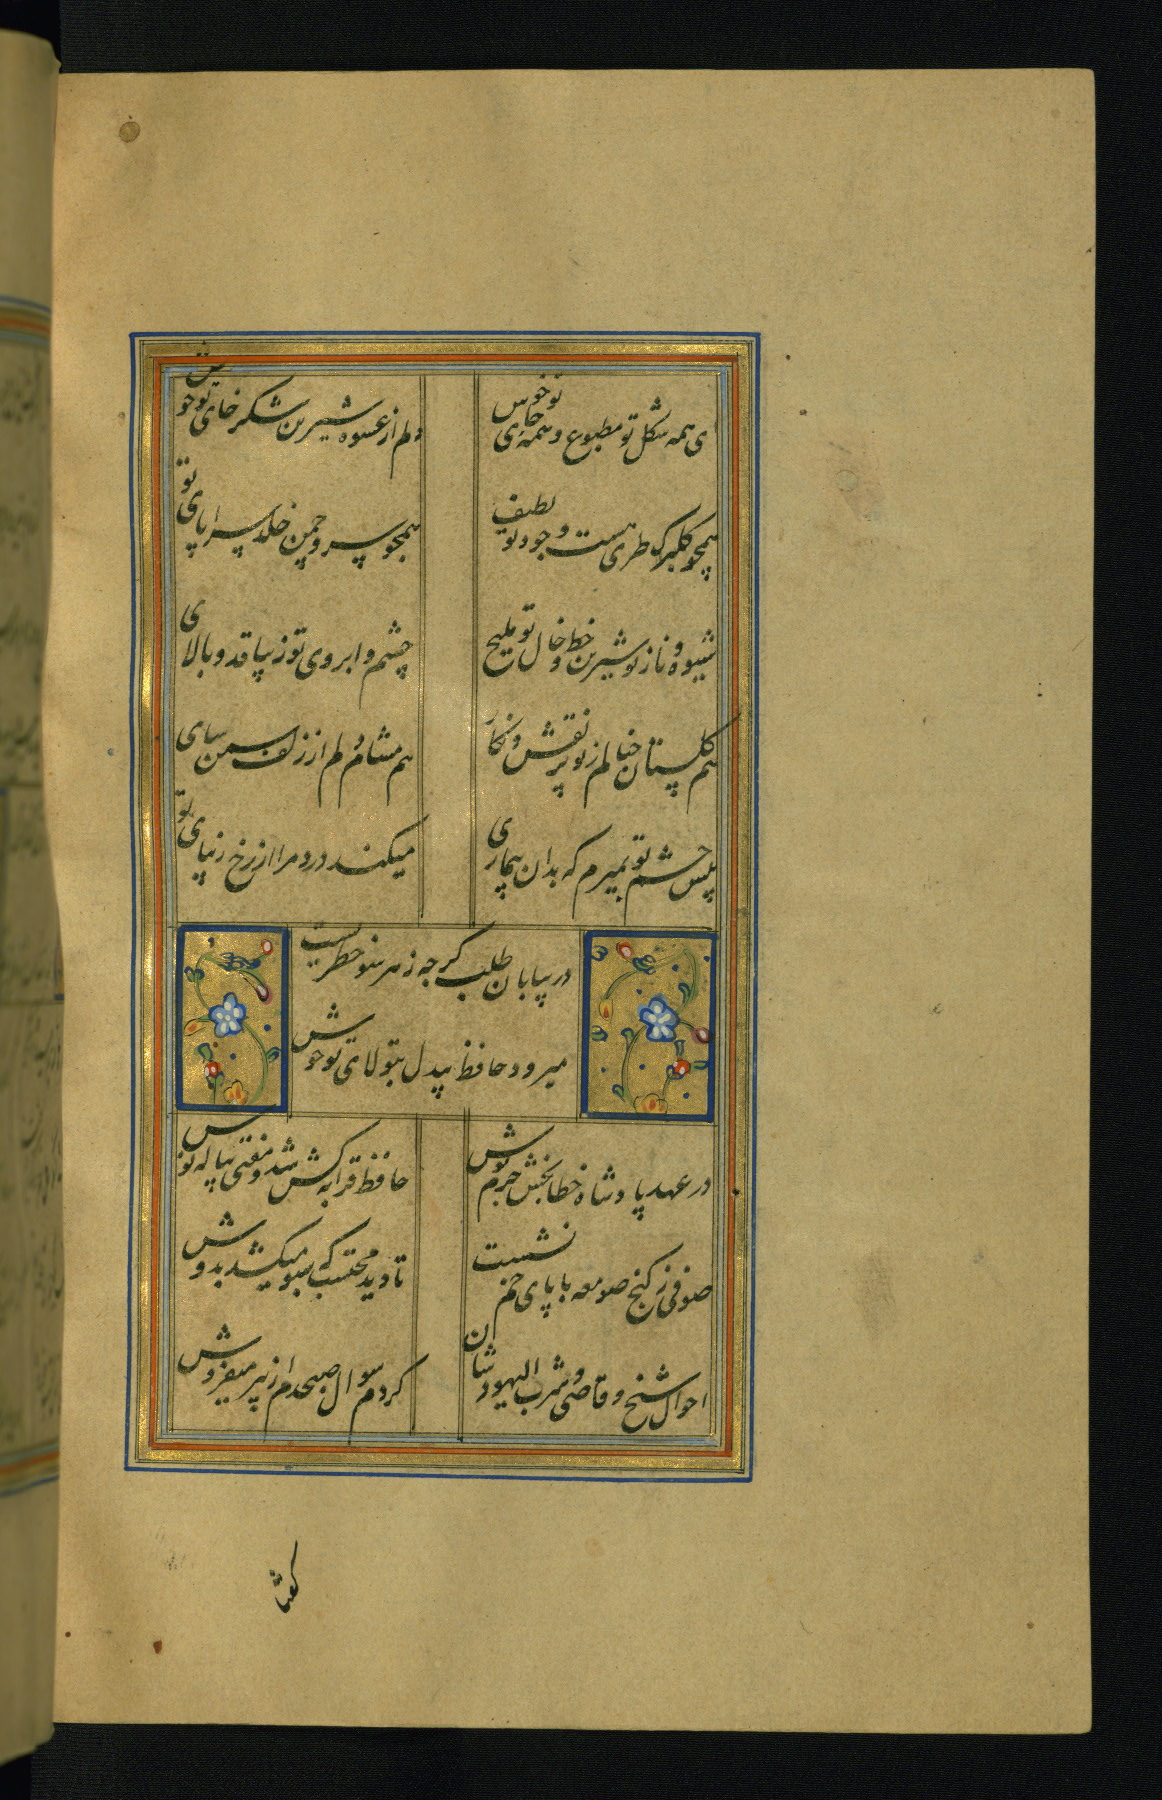 ای همه شکل تو مطبوع و همه جای تو خوش
دلم از عشوه شیرین شکر خای تو خوش
همچو گلبرگ طری هست وجود تو لطیف
همچو سرو چمن خلد سراپای تو
شیوه و ناز تو شیرین خط و خال تو ملیح
چشم و ابروی تو زیبا قد و بالای
هم گلستان خیالم ز تو پر نقش و نگار
هم مشام دلم از زلف سمن سای
پیش چشم تو بمیرم که بدان بیماری
میکند درد مرا از رخ زیبای تو
در بیابان طلب گرچه ز هر سو خطریست
میرود حافظ بیدل بتولای تو خوش
در عهد پادشاه خطابخش جرم پوش
حافظ قرابه کش شد و مفتی پیاله نوش
صوفی ز کنج صومعه با پای خم نشست
تا دید محتسب که سبو میکشد بدوش
احوال شیخ و قاضی و شرب الیهودشان
کردم سوال صبحدم از پیر میفروش
گفتا